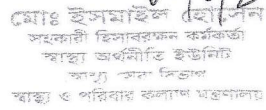 মোঃ ইসমাইল হোসেন
সহকারী হিসাবরক্ষন কর্মকর্তা
স্বাস্থ্য অর্থনীতি ইউনিট
স্বাস্থ্য সেবা বিভাগ
স্বাস্থ্য ও পরিবার কল্যাণ মন্ত্রণালয়